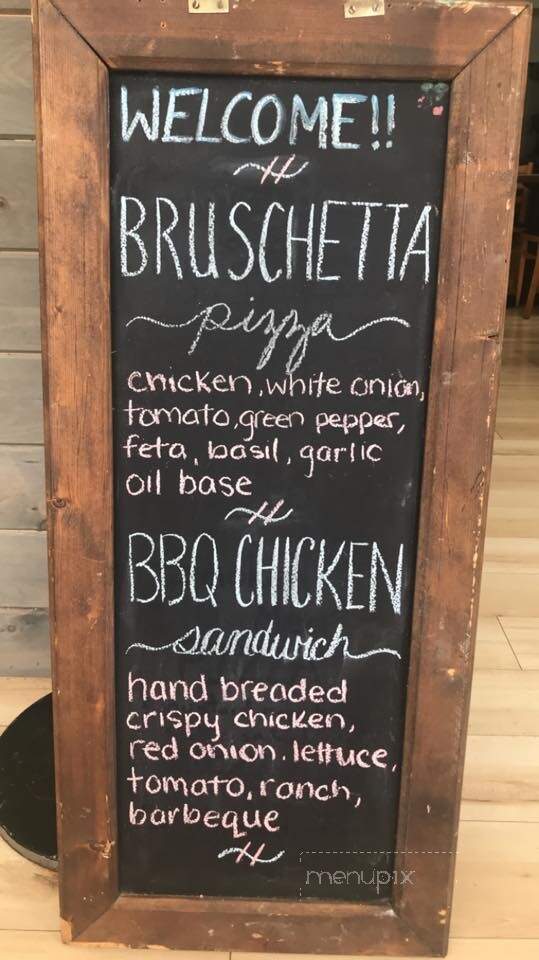 WELCOME!!
BRUSCHETTA
pizza
chicken, white onion,
tomato, green pepper,
feta, basil, garlic
oil base
BBQ CHICKEN
sandwich
hand breaded
crispy chicken,
red onion. lettuce,
tomato, ranch,
barbeque
menupix